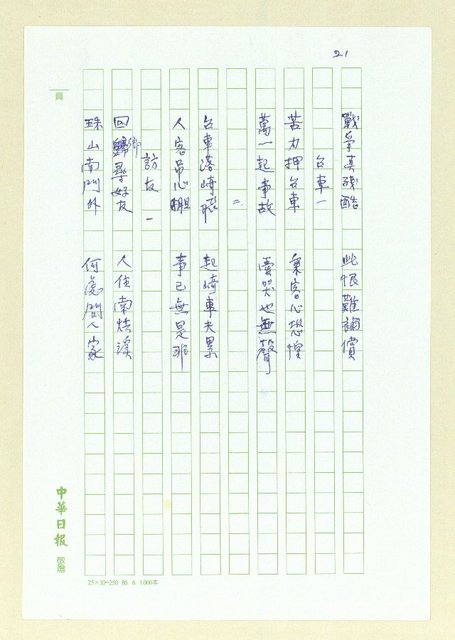 21
戰爭真殘酷　此恨難補償
台車一
苦力押台車　乘客心恐惶
萬一起事故　要哭也無聲
二
台車落崎飛　起崎車夫累
人客吊心肝　事已無是非
訪友一
回鄉尋好友　人住南
珠山南門外　何處問人家
頁
中華日報
敬贈
25×10=250 86. 6. 1,000本